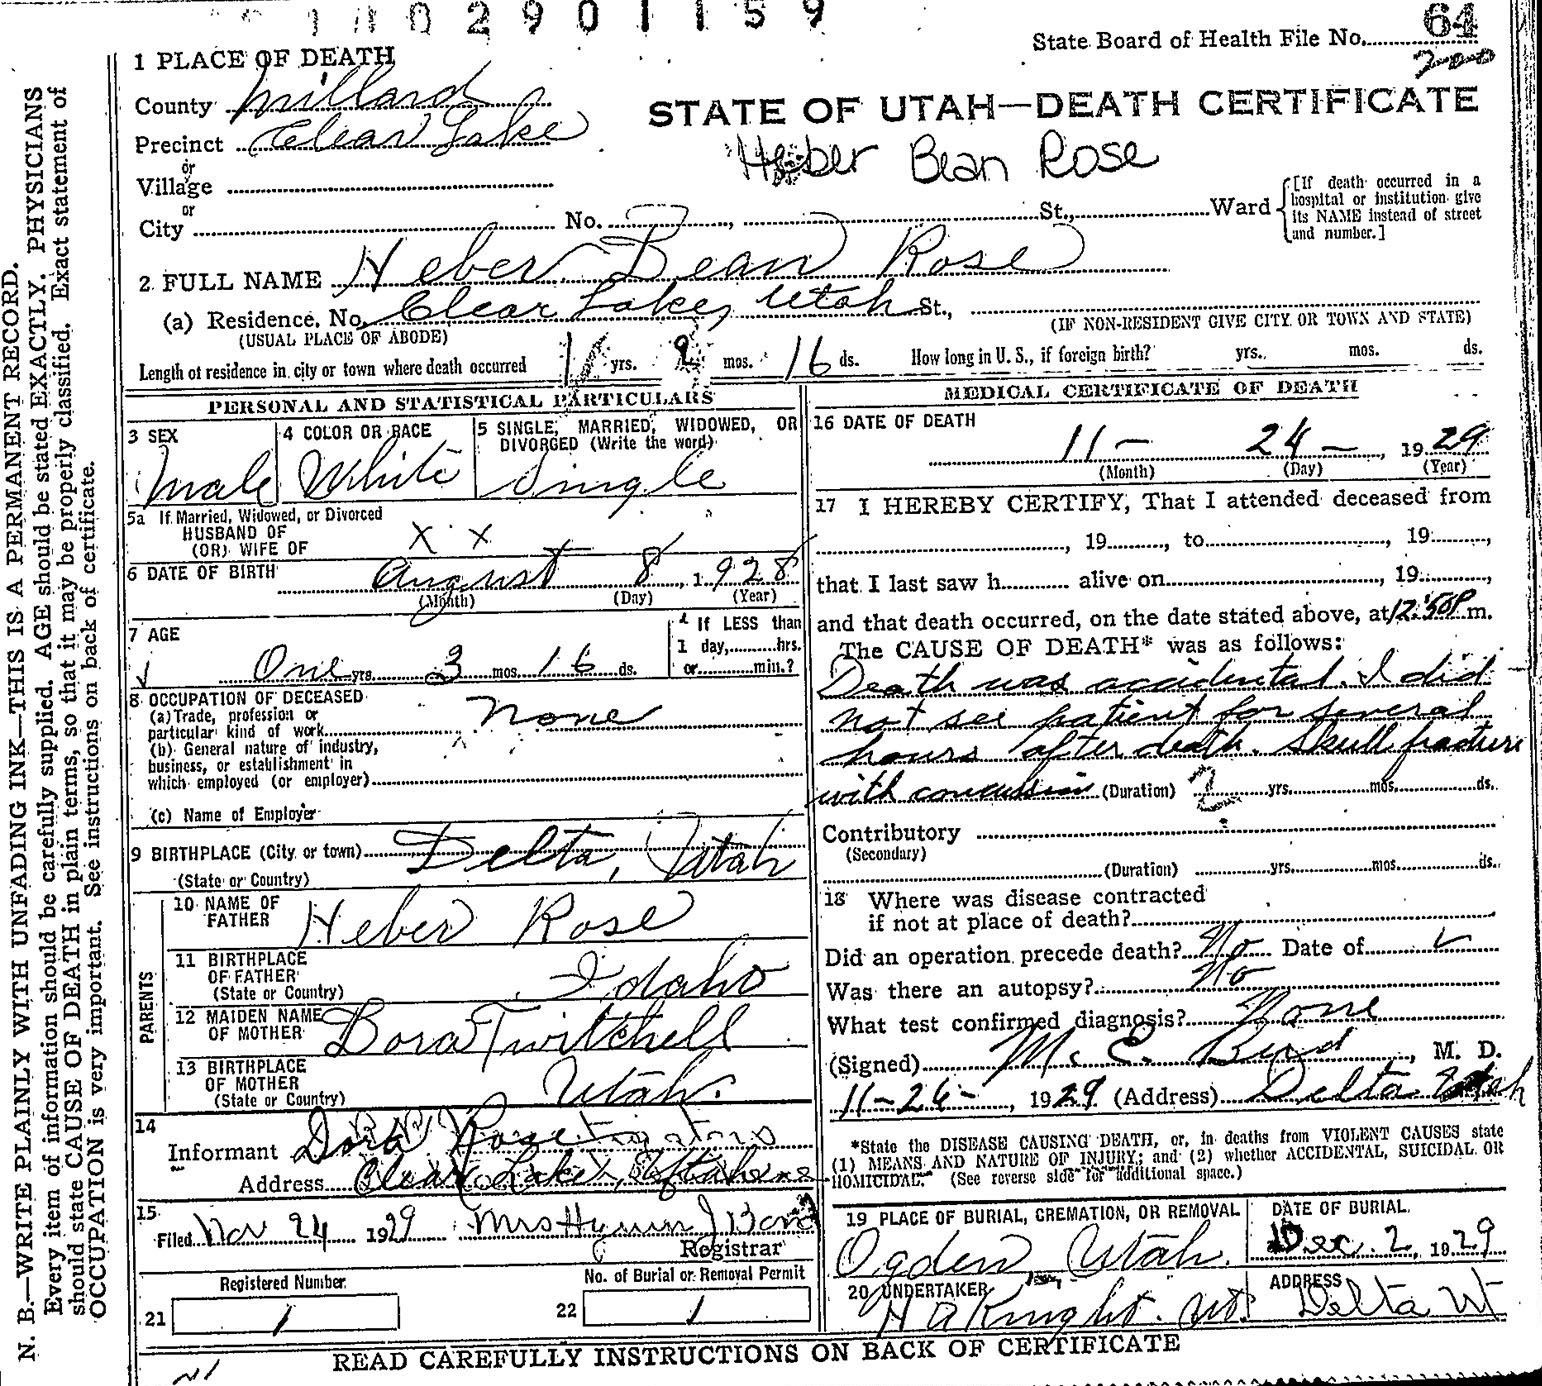 1 1 0 2 9 0 1 1 5 9
State Board of Health File No. 64
200
1 PLACE OF DEATH
County Millard
STATE OF UTAH—DEATH CERTIFICATE
Precinct Clear Lake
Heber Bean Rose
or
Village
or
City No. St., Ward
[If death occurred in a
hospital or institution give
its NAME instead of street
and number.]
2 FULL NAME Heber Bean Rose
(a) Residence. No. Clear Lake, Utah St.,
(USUAL PLACE OF ABODE) (IF NON-RESIDENT GIVE CITY OR TOWN AND STATE)
Length of residence in city or town where death occurred 1 yrs. mos. 16 ds. How long in U. S., if foreign birth? yrs. mos. ds.
PERSONAL AND STATISTICAL PARTICULARS
3 SEX
Male
4 COLOR OR RACE
White
5 SINGLE, MARRIED, WIDOWED, OR
DIVORCED (Write the word)
Single
5a If Married, Widowed, or Divorced
HUSBAND OF
(OR) WIFE OF X X
6 DATE OF BIRTH August 8, 1928
(Month) (Day) (Year)
7 AGE
One yrs. 3 mos. 16 ds.
If LESS than
1 day, hrs.
or min.?
8 OCCUPATION OF DECEASED
(a) Trade, profession or
particular kind of work None
(b) General nature of industry,
business, or establishment in
which employed (or employer)
(c) Name of Employer
9 BIRTHPLACE (City or town) Delta, Utah
(State or Country)
PARENTS
10 NAME OF
FATHER Heber Rose
11 BIRTHPLACE
OF FATHER
(State or Country) Idaho
12 MAIDEN NAME
OF MOTHER Dora Twitchell
13 BIRTHPLACE
OF MOTHER
(State or Country) Utah.
14
Informant Dora Rose
Address Clear Lake,
15
Filed Nov 24 1929 Mrs Hyrum J Bond
Registrar
Registered Number
21 1
No. of Burial or Removal Permit
22 1
MEDICAL CERTIFICATE OF DEATH
16 DATE OF DEATH
11 - 24 - , 1929
(Month) (Day) (Year)
17 I HEREBY CERTIFY, That I attended deceased from
, 19 , to , 19 ,
that I last saw h alive on , 19 ,
and that death occurred, on the date stated above, at 12:50P m.
The CAUSE OF DEATH* was as follows:
Death was accidental. I did
not see patient for several
hours after death. Skull fracture
with concussion (Duration) 2 yrs. mos. ds.
Contributory
(Secondary)
(Duration) yrs. mos. ds.
18 Where was disease contracted
if not at place of death?
Did an operation precede death? No Date of
Was there an autopsy? No
What test confirmed diagnosis? None
(Signed) M. E. Bird, M. D.
11-24-, 1929 (Address) Delta Utah
*State the DISEASE CAUSING DEATH, or, in deaths from VIOLENT CAUSES state
(1) MEANS AND NATURE OF INJURY; and (2) whether ACCIDENTAL, SUICIDAL OR
HOMICIDAL. (See reverse side for additional space.)
19 PLACE OF BURIAL, CREMATION, OR REMOVAL
Ogden, Utah.
DATE OF BURIAL.
Dec. 2, 1929
20 UNDERTAKER
H A Knight. Ut.
ADDRESS
Delta Ut
READ CAREFULLY INSTRUCTIONS ON BACK OF CERTIFICATE
N. B.—WRITE PLAINLY WITH UNFADING INK—THIS IS A PERMANENT RECORD.
Every item of information should be carefully supplied. AGE should be stated EXACTLY. PHYSICIANS
should state CAUSE OF DEATH in plain terms, so that it may be properly classified. Exact statement of
OCCUPATION is very important. See instructions on back of certificate.